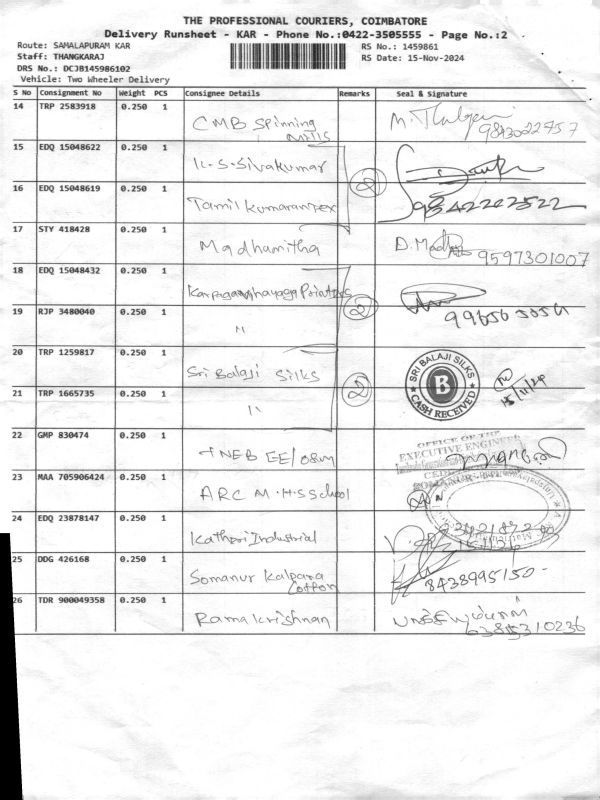 THE PROFESSIONAL COURIERS, COIMBATORE
Delivery Runsheet - KAR - Phone No.:0422-3505555 - Page No.:2
Route: SAMALAPURAM KAR
Staff: THANGKARAJ
DRS No.: DCJB145986102
Vehicle: Two Wheeler Delivery
RS No.: 1459861
RS Date: 15-Nov-2024
S No Consignment No Weight PCS Consignee Details Remarks Seal & Signature
14 TRP 2583918 0.250 1 CMB Spinning Mills 9843022457
15 EDQ 15048622 0.250 1 K.S.Sivakumar
16 EDQ 15048619 0.250 1 Tamil Kumaran 2 9842222522
17 STY 418428 0.250 1 Madhamitha D. Madhu 9597301007
18 EDQ 15048432 0.250 1 Printers
19 RJP 3480040 0.250 1 " 2
20 TRP 1259817 0.250 1 Sri Balaji Silks SRI BALAJI SILKS B CASH RECEIVED
21 TRP 1665735 0.250 1 " 2 15/11/24
22 GMP 830474 0.250 1 TNEB EE/O&M OFFICE OF THE EXECUTIVE ENGINEER
23 MAA 705906424 0.250 1 ARC M.H.S School
24 EDQ 23878147 0.250 1 Kathri Industrial
25 DDG 426168 0.250 1 Somanur Kalpana Cotton 8438995150
26 TDR 900049358 0.250 1 Ramakrishnan 6381310236